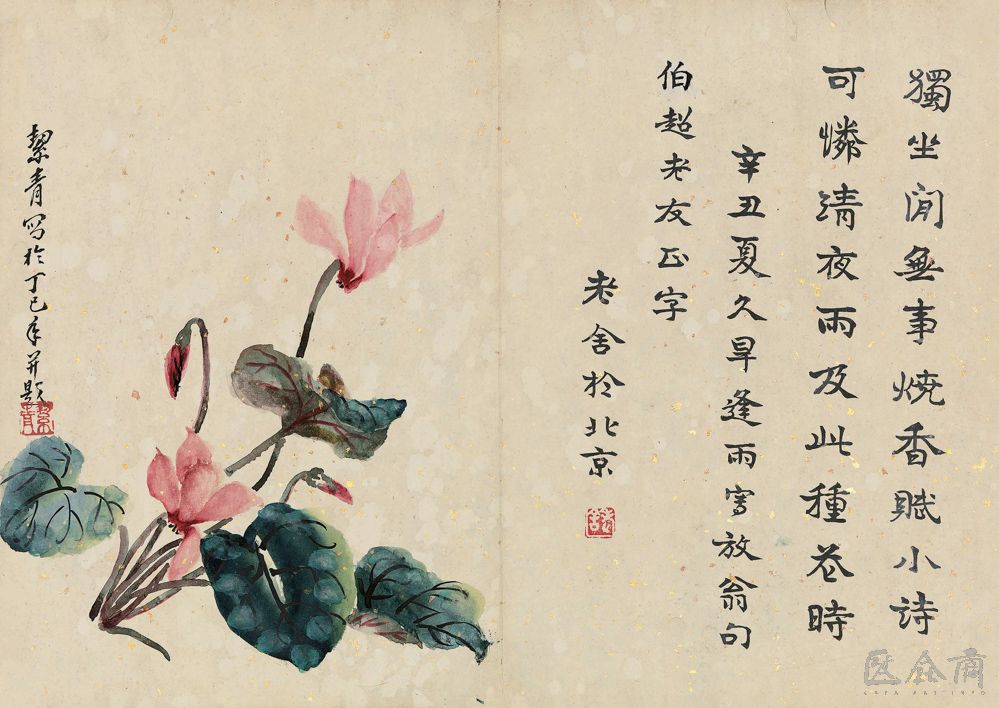 獨坐閒無事燒香賦小詩
可憐清夜雨及此種花時
辛丑夏久旱逢雨寫放翁句
伯超老友正字
老舍於北京
老舍
絜青写於丁巳年并題
絜青